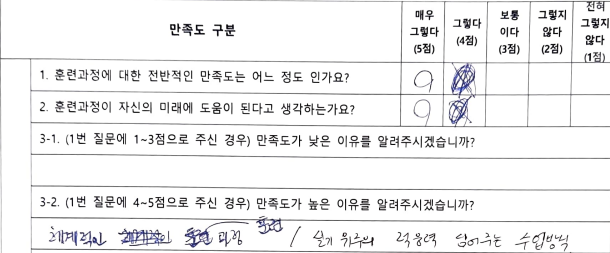 만족도 구분 매우 그렇다 (5점) 그렇다 (4점) 보통 이다 (3점) 그렇지 않다 (2점) 전혀 그렇지 않다 (1점)
1. 훈련과정에 대한 전반적인 만족도는 어느 정도 인가요?
2. 훈련과정이 자신의 미래에 도움이 된다고 생각하는가요?
3-1. (1번 질문에 1~3점으로 주신 경우) 만족도가 낮은 이유를 알려주시겠습니까?
3-2. (1번 질문에 4~5점으로 주신 경우) 만족도가 높은 이유를 알려주시겠습니까?
체계적인 훈련 과정 / 실기 위주의 적응력 높여주는 수업방식